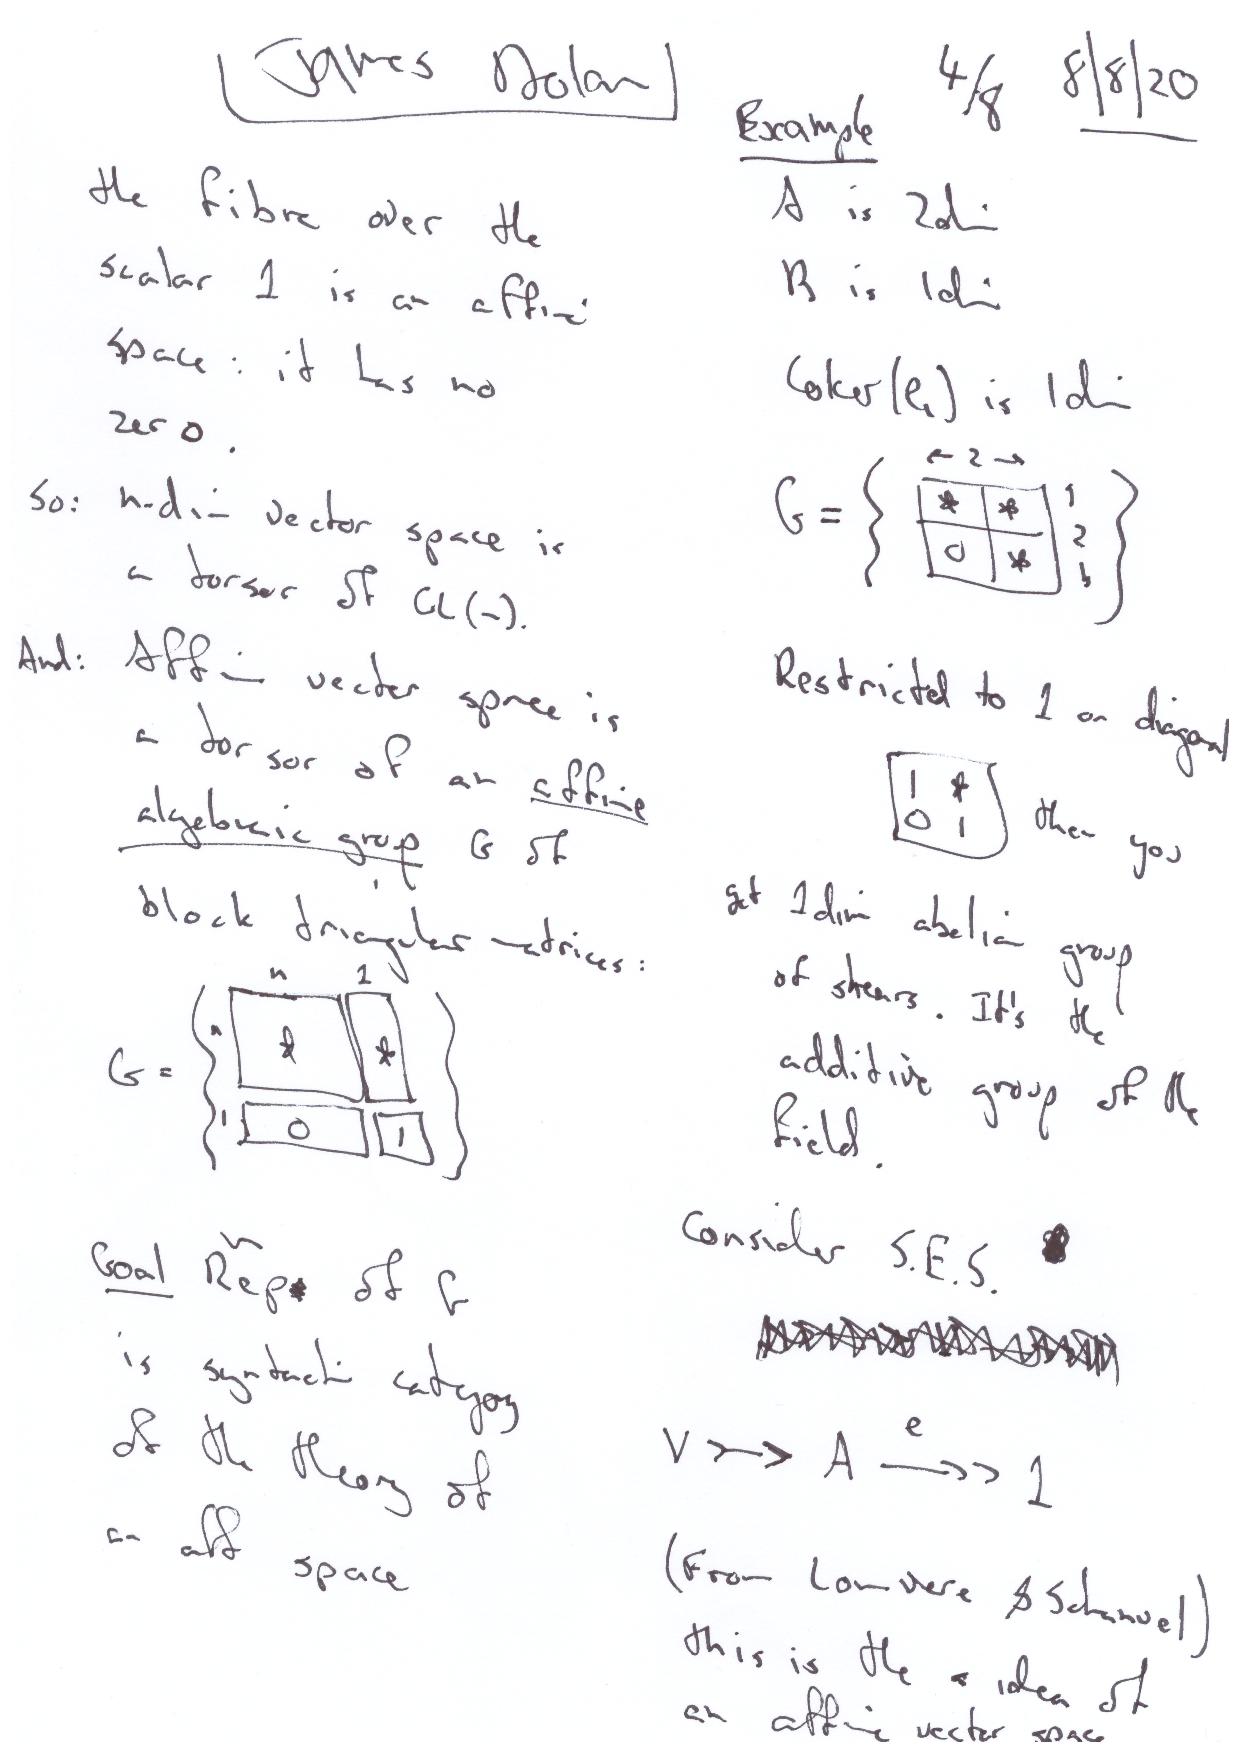 James Dolan
4/8 8/8/20
the fibre over the
scalar 1 is an affine
space: it has no
zero.
So: n-dim vector space is
a torsor of GL(n).
And: Affine vector space is
a torsor of an affine
algebraic group G of
block triangular matrices:
n 1
G = { n * *
1 0 1 }
Goal Repn of G
is syntactic category
of the theory of
an aff space
Example
A is 2dim
B is 1dim
Coker(e1) is 1dim
← 2 →
G = { * * 1
2
0 * }
Restricted to 1 on diagonal
1 *
0 1 then you
get 1dim abelian group
of shears. It's the
additive group of the
field.
Consider S.E.S.
V ↣ A ↠ 1
e
(From Lawvere & Schanuel)
this is the idea of
an affine vector space